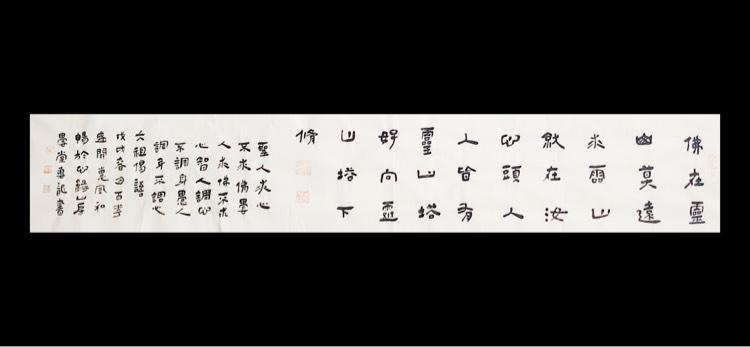 佛在靈
山莫遠
求靈山
就在汝
心頭人
人皆有
靈山塔
好向靈
山塔下
修
聖人求心
不求佛愚
人求佛不求
心智人調心
不調身愚人
調身不調心
六祖偈語
戊戌春月百花
盛開惠風和
暢於心緣山房
學堂書